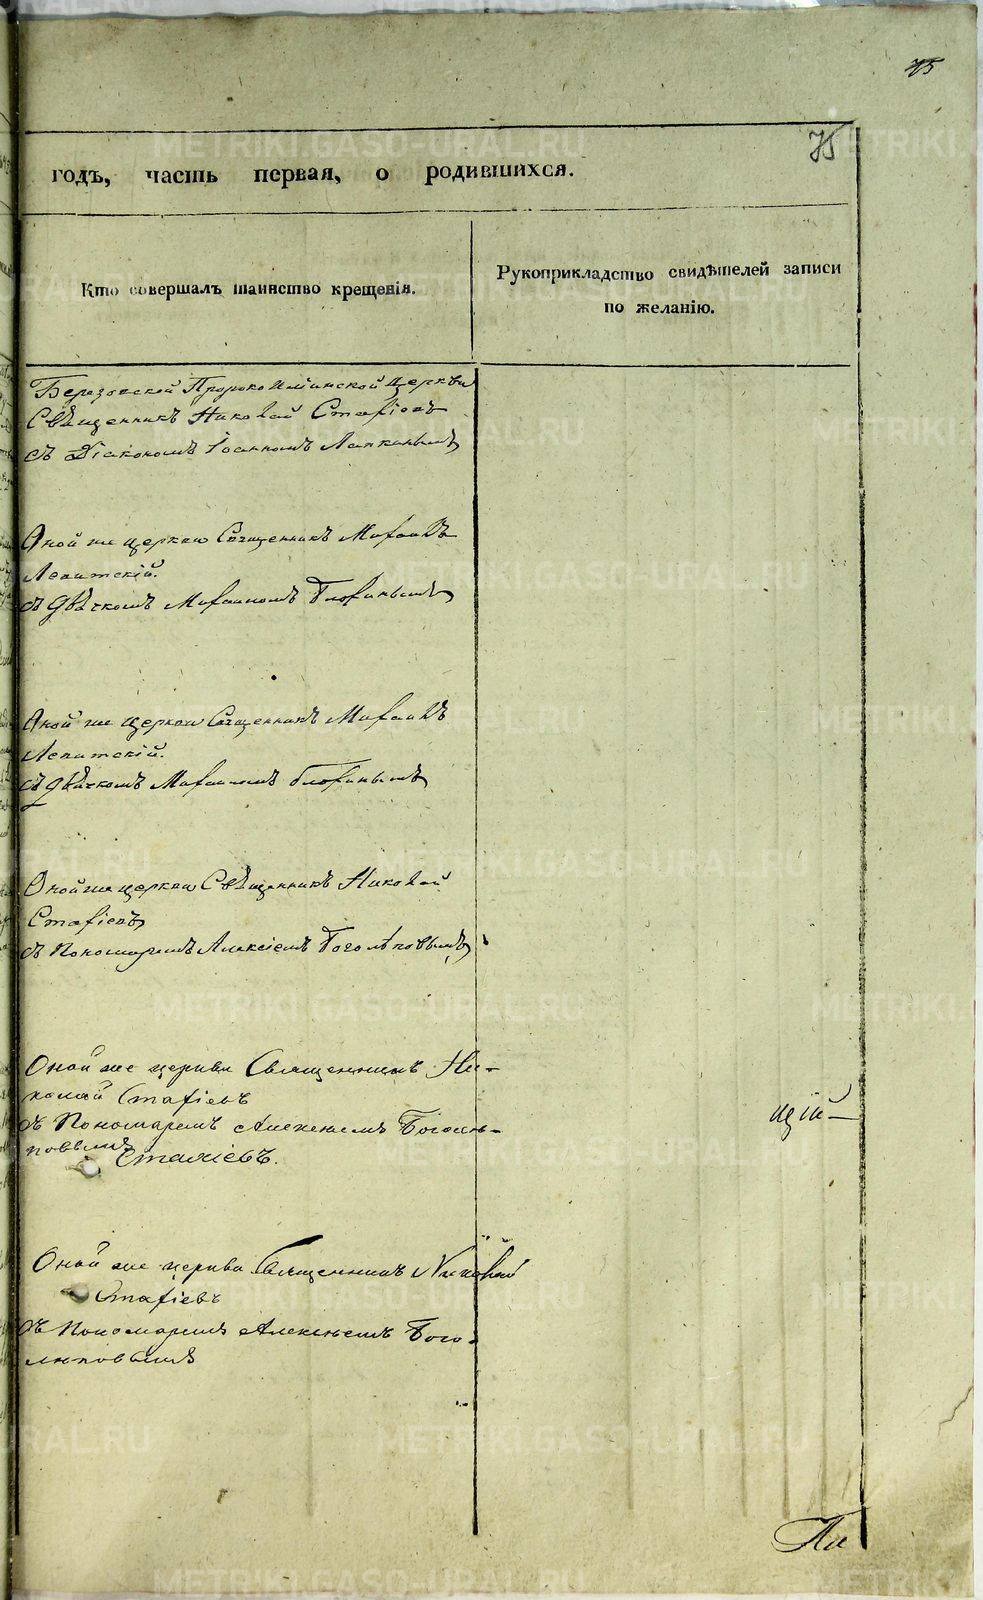 75
75
годъ, часть первая, о родившихся.
Кто совершалъ таинство крещенія.
Рукоприкладство свидѣтелей записи
по желанію.
Березовской Пророкоильинской церкви
Священникъ Николай Стафіевъ
съ Діакономъ Іоанномъ Лапкинымъ
Оной же церкви Священникъ Михаилъ
Лепитскій.
съ Дьячкомъ Михаиломъ
Оной же церкви Священникъ Михаилъ
Лепитскій.
съ дьячкомъ Михаиломъ
Оной же церкви Священникъ Николай
Стафіевъ
съ Пономаремъ Алексіемъ Боголѣповымъ
Оной же церкви Священникъ Ни-
колай Стафіевъ
съ Пономаремъ Алексеемъ Боголѣ-
повымъ
Стафіевъ.
цій
Оной же церкви Священникъ Николай
Стафіевъ
съ Пономаремъ Алексеемъ Бого-
лѣповымъ
Па
METRIKI.GASO-URAL.RU